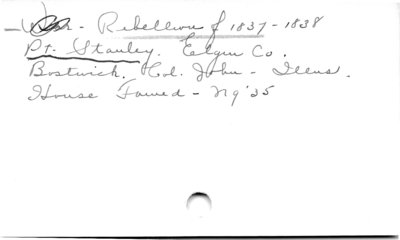 - Rebellion of 1837 - 1838
Pt. Stanley. Elgin Co.
Bostwick, Col. John - Illus.
House Famed - N 9 '35